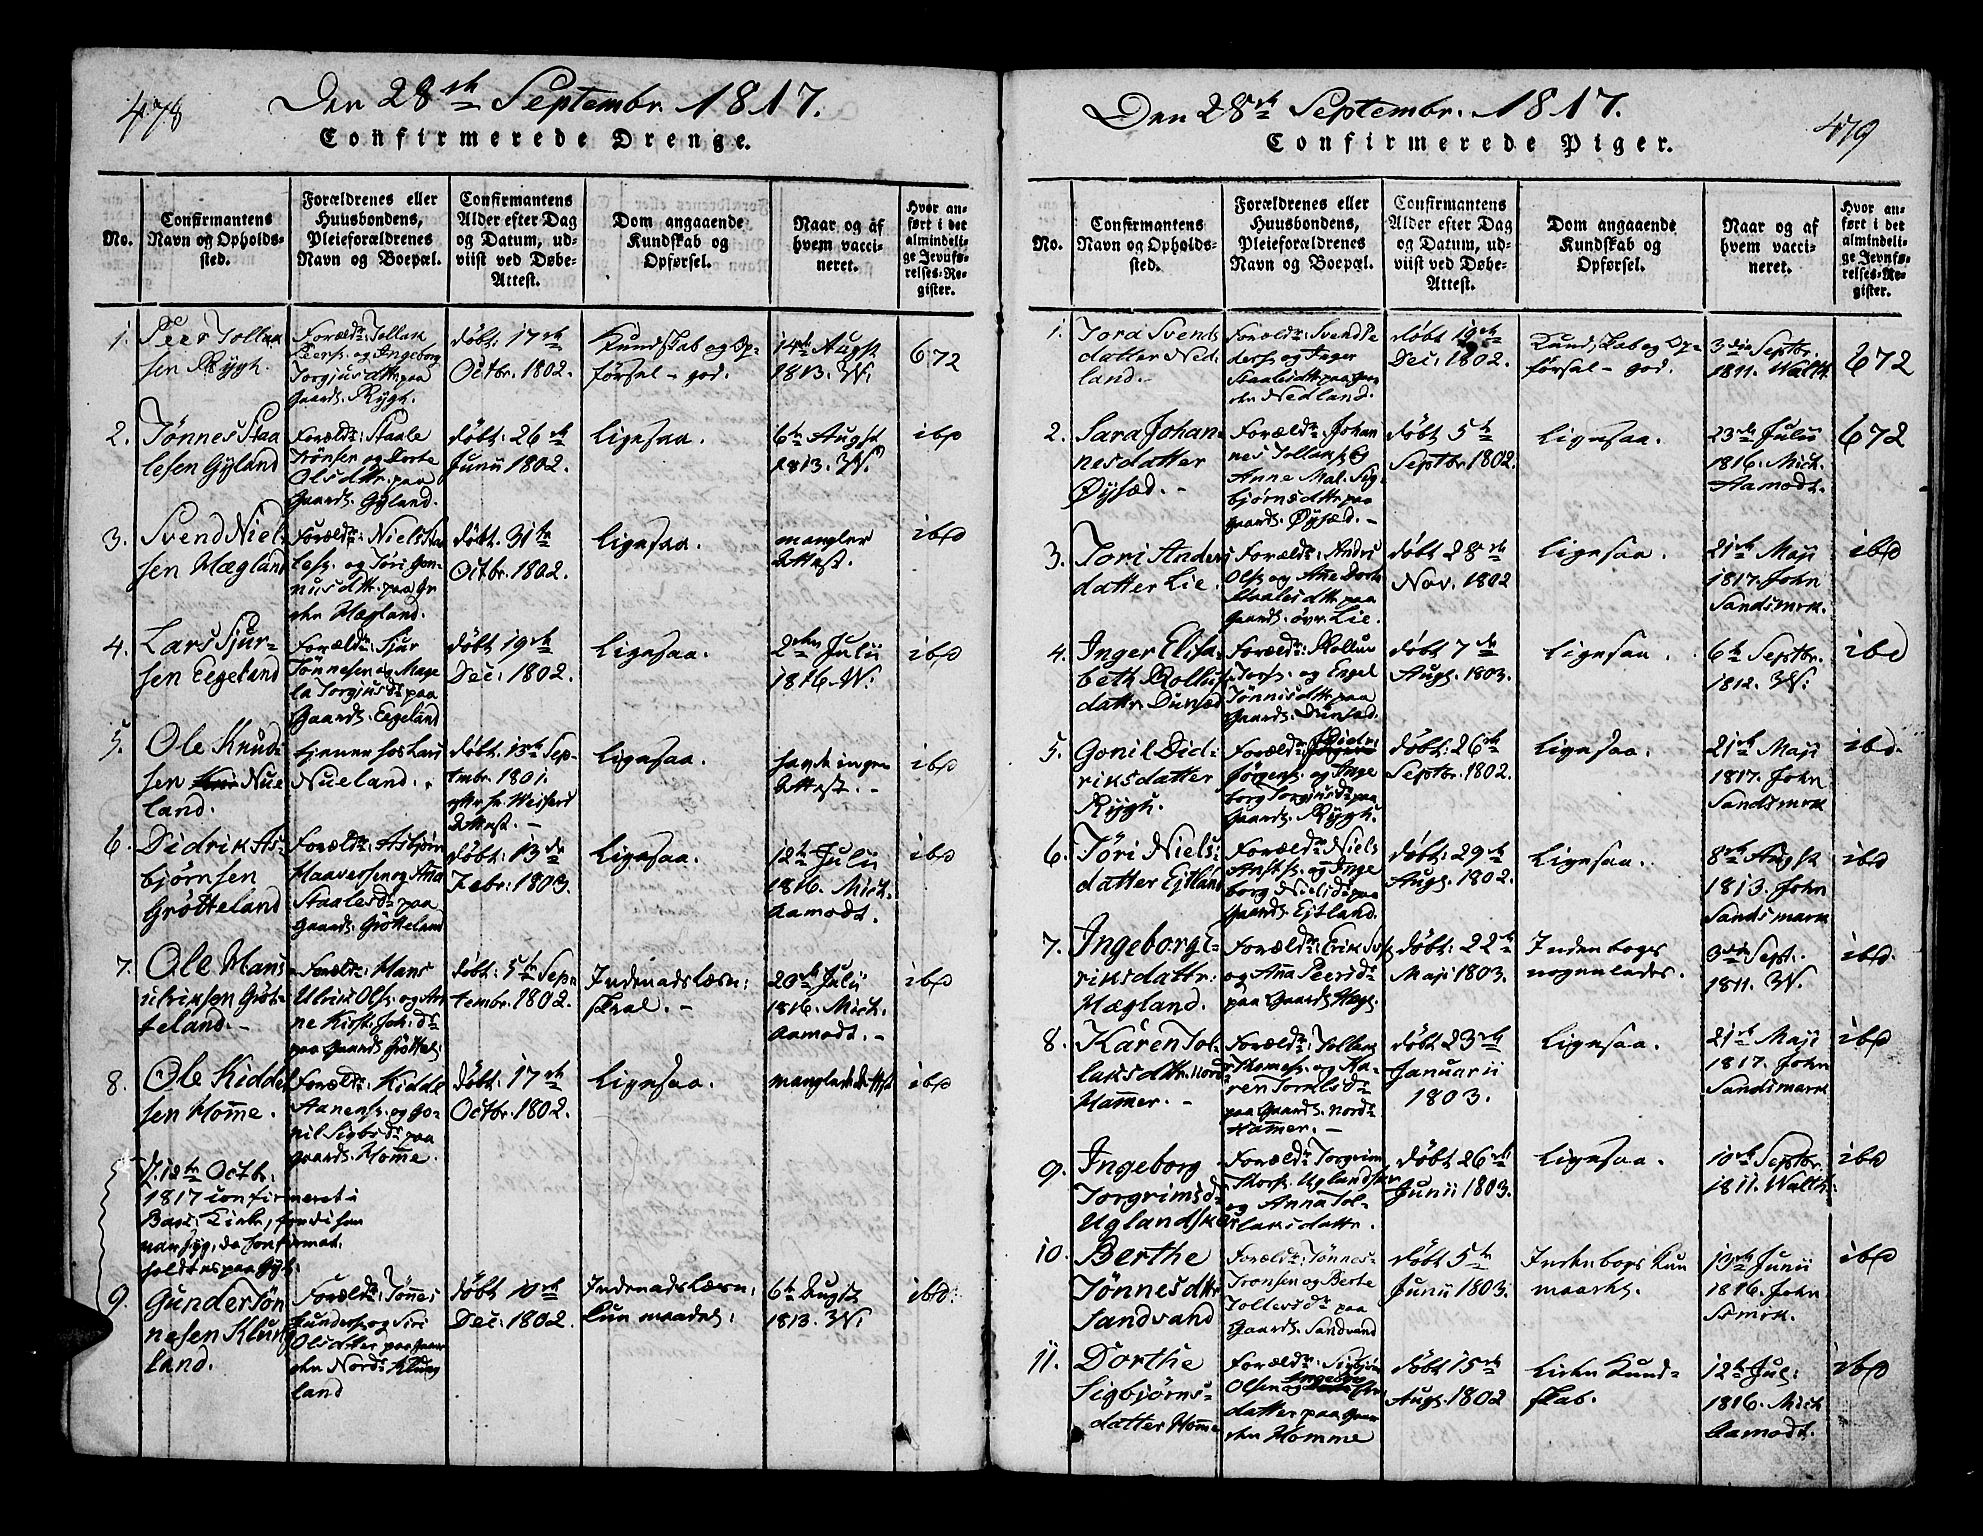 478
Den 28de Septembr. 1817.
Confirmerede Drenge.
No.
Confirmantens
Navn og Opholds-
sted.
Forældrenes eller
Huusbondens,
Pleieforældrenes
Navn og Boepæl.
Confirmantens
Alder efter Dag
og Datum, ud-
viist ved Døbe-
Attest.
Dom angaaende
Kundskab og
Opførsel.
Naar og af
hvem vacci-
neret.
Hvor an-
ført i det
almindeli-
ge Jevnfø-
relses-Re-
gister.
1.
Peer Tollak
sen Rygh.
Forældr: Tollak
Peers. og Ingeborg
Torgjusdttr. paa
Gaard. Rygh.
døbt: 17de
Octbr. 1802.
Kundskab og Op-
førsel - god.
14de Augst
1813. W:
672
2.
Tønnes Staa
lesen Gyland
Forældr: Staale
Trønsen og Dorte
Olsdttr. paa
Gaard. Gyland.
døbt: 26de
Junii 1802.
Ligesaa.
6te Augst
1813. W.
ibd
3.
Svend Niel-
sen Hægland
Forældr: Niels Staa
les. og Tøri Gun-
nusdttr. paa Gr
den Hægland.
døbt: 31te
Octbr. 1802.
Ligesaa.
mangler
Attest.
ibd
4.
Lars Sjur-
sen Eegeland
Forældr: Sjur
Tønnesen og Mage
la Torgjusd: paa
Gaard. Eegeland
døbt: 19de
Dec: 1802.
Ligesaa.
2den Julii
1816. W:
ibd
5.
Ole Knud-
sen Nue
land.
tjener hos Lars
Nueland.
døbt: 13de Sep-
tembr. 1801.
efter hr. Weisers
Attest. -
Ligesaa.
havde ingen
Attest. -
ibd
6.
Didrik As-
bjørnsen
Grøtteland
Forældr: Asbjørn
Haaversen og Ana
Staalesd: paa
Gaard. Grøtteland
døbt: 13de
Febr: 1803.
Ligesaa.
12te Julii
1816. Mich.
Aamodt.
ibd
7.
Ole Hans
Ulriksen Grøt-
teland. -
Forældr: Hans
Ulrik Ols. og An
ne Kirst. Joh: d:
paa Gaard. Grøttel:
døbt: 5te Sep-
tembr. 1802.
Indenadslæsn:
skral. -
20de Julii
1816. Mich.
Aamodt. -
ibd
8.
Ole Kiddel
sen Home.
Forældr: Kiddle
Aanens. og Go-
nil Sigbd: paa
Gaard. Homme.
døbt: 17de
Octbr. 1802.
Ligesaa.
mangler Attest
ibd
d. 12te Octbr.
1817 confirmeret i
Bak: Kirke, fordi han
var syg, da Confirmat.
holdtes paa Gyl:
9.
Gunder Tøn
nesen Klung
land.
Forældr: Tønnes
Gunders. og Siri
Olsdatter paa Gaar
den Nord: Klung
land
døbt 10de
Dec: 1802.
Indenadslæsn:
kun maadel:
6te Augst
1813. W:
ibd.
Den 28de Septembr. 1817.
Confirmerede Piger.
479
No.
Confirmantens
Navn og Opholds-
sted.
Forældrenes eller
Huusbondens,
Pleieforældrenes
Navn og Boepæl.
Confirmantens
Alder efter Dag
og Datum, ud-
viist ved Døbe-
Attest.
Dom angaaende
Kundskab og
Opførsel.
Naar og af
hvem vacci-
neret.
Hvor an-
ført i det
almindeli-
ge Jevnfø-
relses-Re-
gister.
1.
Tora Svends
datter Ned
land. -
Forældr: Svend Pe
ders. og Inger
Staalesdttr. paa Gaar
den Nedland.
døbt 19de
Dec: 1802.
Kundskab og Op-
førsel - god.
3die Septbr.
1811. Walth.
672
2.
Sara Johan-
nesdatter
Øysæd. -
Forældr: Johan
nes Tollaks. og
Anne Mal. Sig-
bjørnsdttr. paa
Gaard. Øysæd. -
døbt 5te
Septbr. 1802.
Ligesaa.
23de Julii
1816. Mich.
Aamodt.
672
3.
Tori Anders
datter Lie.
Forældr: Anders
Ols. og Ane Dorte
Staalesdttr. paa
Gaard. øvr. Lie.
døbt 28de
Nov. 1802
Ligesaa.
21de Maji
1817. John
Sandsmrk.
ibd
4.
Inger Elisa
beth Rollufs
dattr. Dunsæd
Forældr: Rolluv
Tors. og Engel
Tønnisdttr. paa
Gaard. Dunsæd.
døbt 7de
Augs. 1803.
Ligesaa.
6te Septbr.
1812. W:
ibd
5.
Gonil Did-
riksdatter
Rygh.
Forældr: Didrik
Jørgens. og Inge
borg Torgjusd: paa
Gaard. Rygh.
døbt: 26de
Septbr. 1802.
Ligesaa.
21de Maji
1817. John
Sandsmrk
ibd.
6.
Tøri Niels-
datter Ejtland
Forældr: Niels
Ansts. og Inge
borg Nielsd: paa
Gaard. Ejtland.
døbt: 29de
Augs. 1802.
Ligesaa.
8de Augst
1813. John
Sandsmark
ibd
7.
Ingeborg E-
riksdattr.
Hægland.
Forældr: Erik
og Ana Peersd:
paa Gaard. Hægl.
døbt: 22de
Maji 1803.
Inden bogs
nogenledes.
3die Sept.
1811. W.
ibd.
8.
Karen Tol-
laksdttr. Nord
Hammer. -
Forældr: Tollak
Thomes. og Ka-
ren Torkelsd:
paa Gaard. Nord:
Hammer. -
døbt 23de
Januarii
1803.
Ligesaa.
21de Maji
1817. John
Sandsmark
ibd
9.
Ingeborg
Torgrimsd:
Uglandsker
Forældr: Torgrim
Thors. Uglandsker
og Anna Tol-
laksdattr.
døbt 26de
Junii 1803.
Ligesaa.
10de Septbr.
1811. Walth:
ibd
10.
Berthe
Tønnesdttr.
Sandvand
Forældr: Tønnes
Tronsen og Berte
Tollefsd: paa
Gaard. Sandvand
døbt 5te
Junii 1803.
Inden bogs kun
maadel.
13de Junii
1816. John
Ssmrk.
ibd
11.
Dorthe
Sigbjørns-
datter Homme
Forældr: Sigbjørn
Olsen og Ingeborg
datter paa Gaar
den Homme
døbt 15de
Augs. 1802
Liden Kund-
skab.
12te Jul:
1816. Mich
Aamodt.
ibd